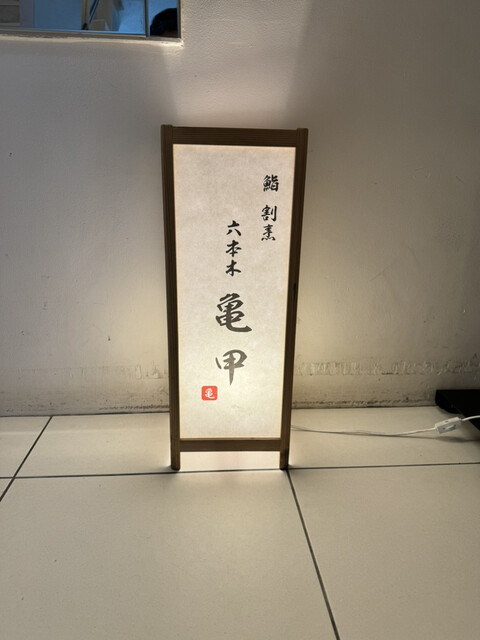 鮨 割烹
六本木
亀甲
亀